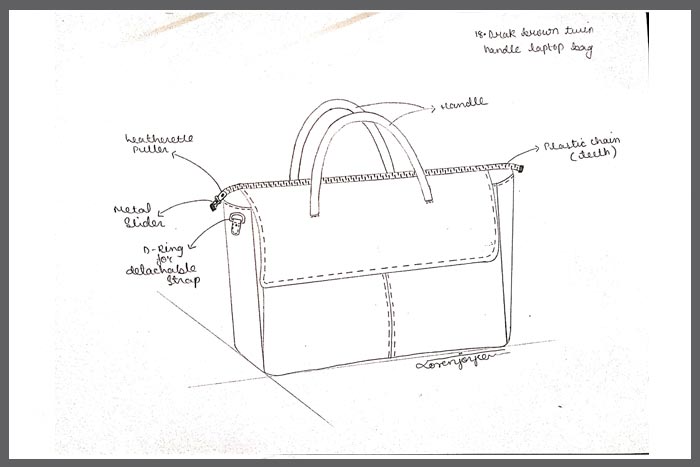 18. Drak brown twin
handle laptop bag
Handle
Leatherette
Puller
Plastic chain
(teeth)
Metal
Slider
D-Ring
for
detachable
Strap